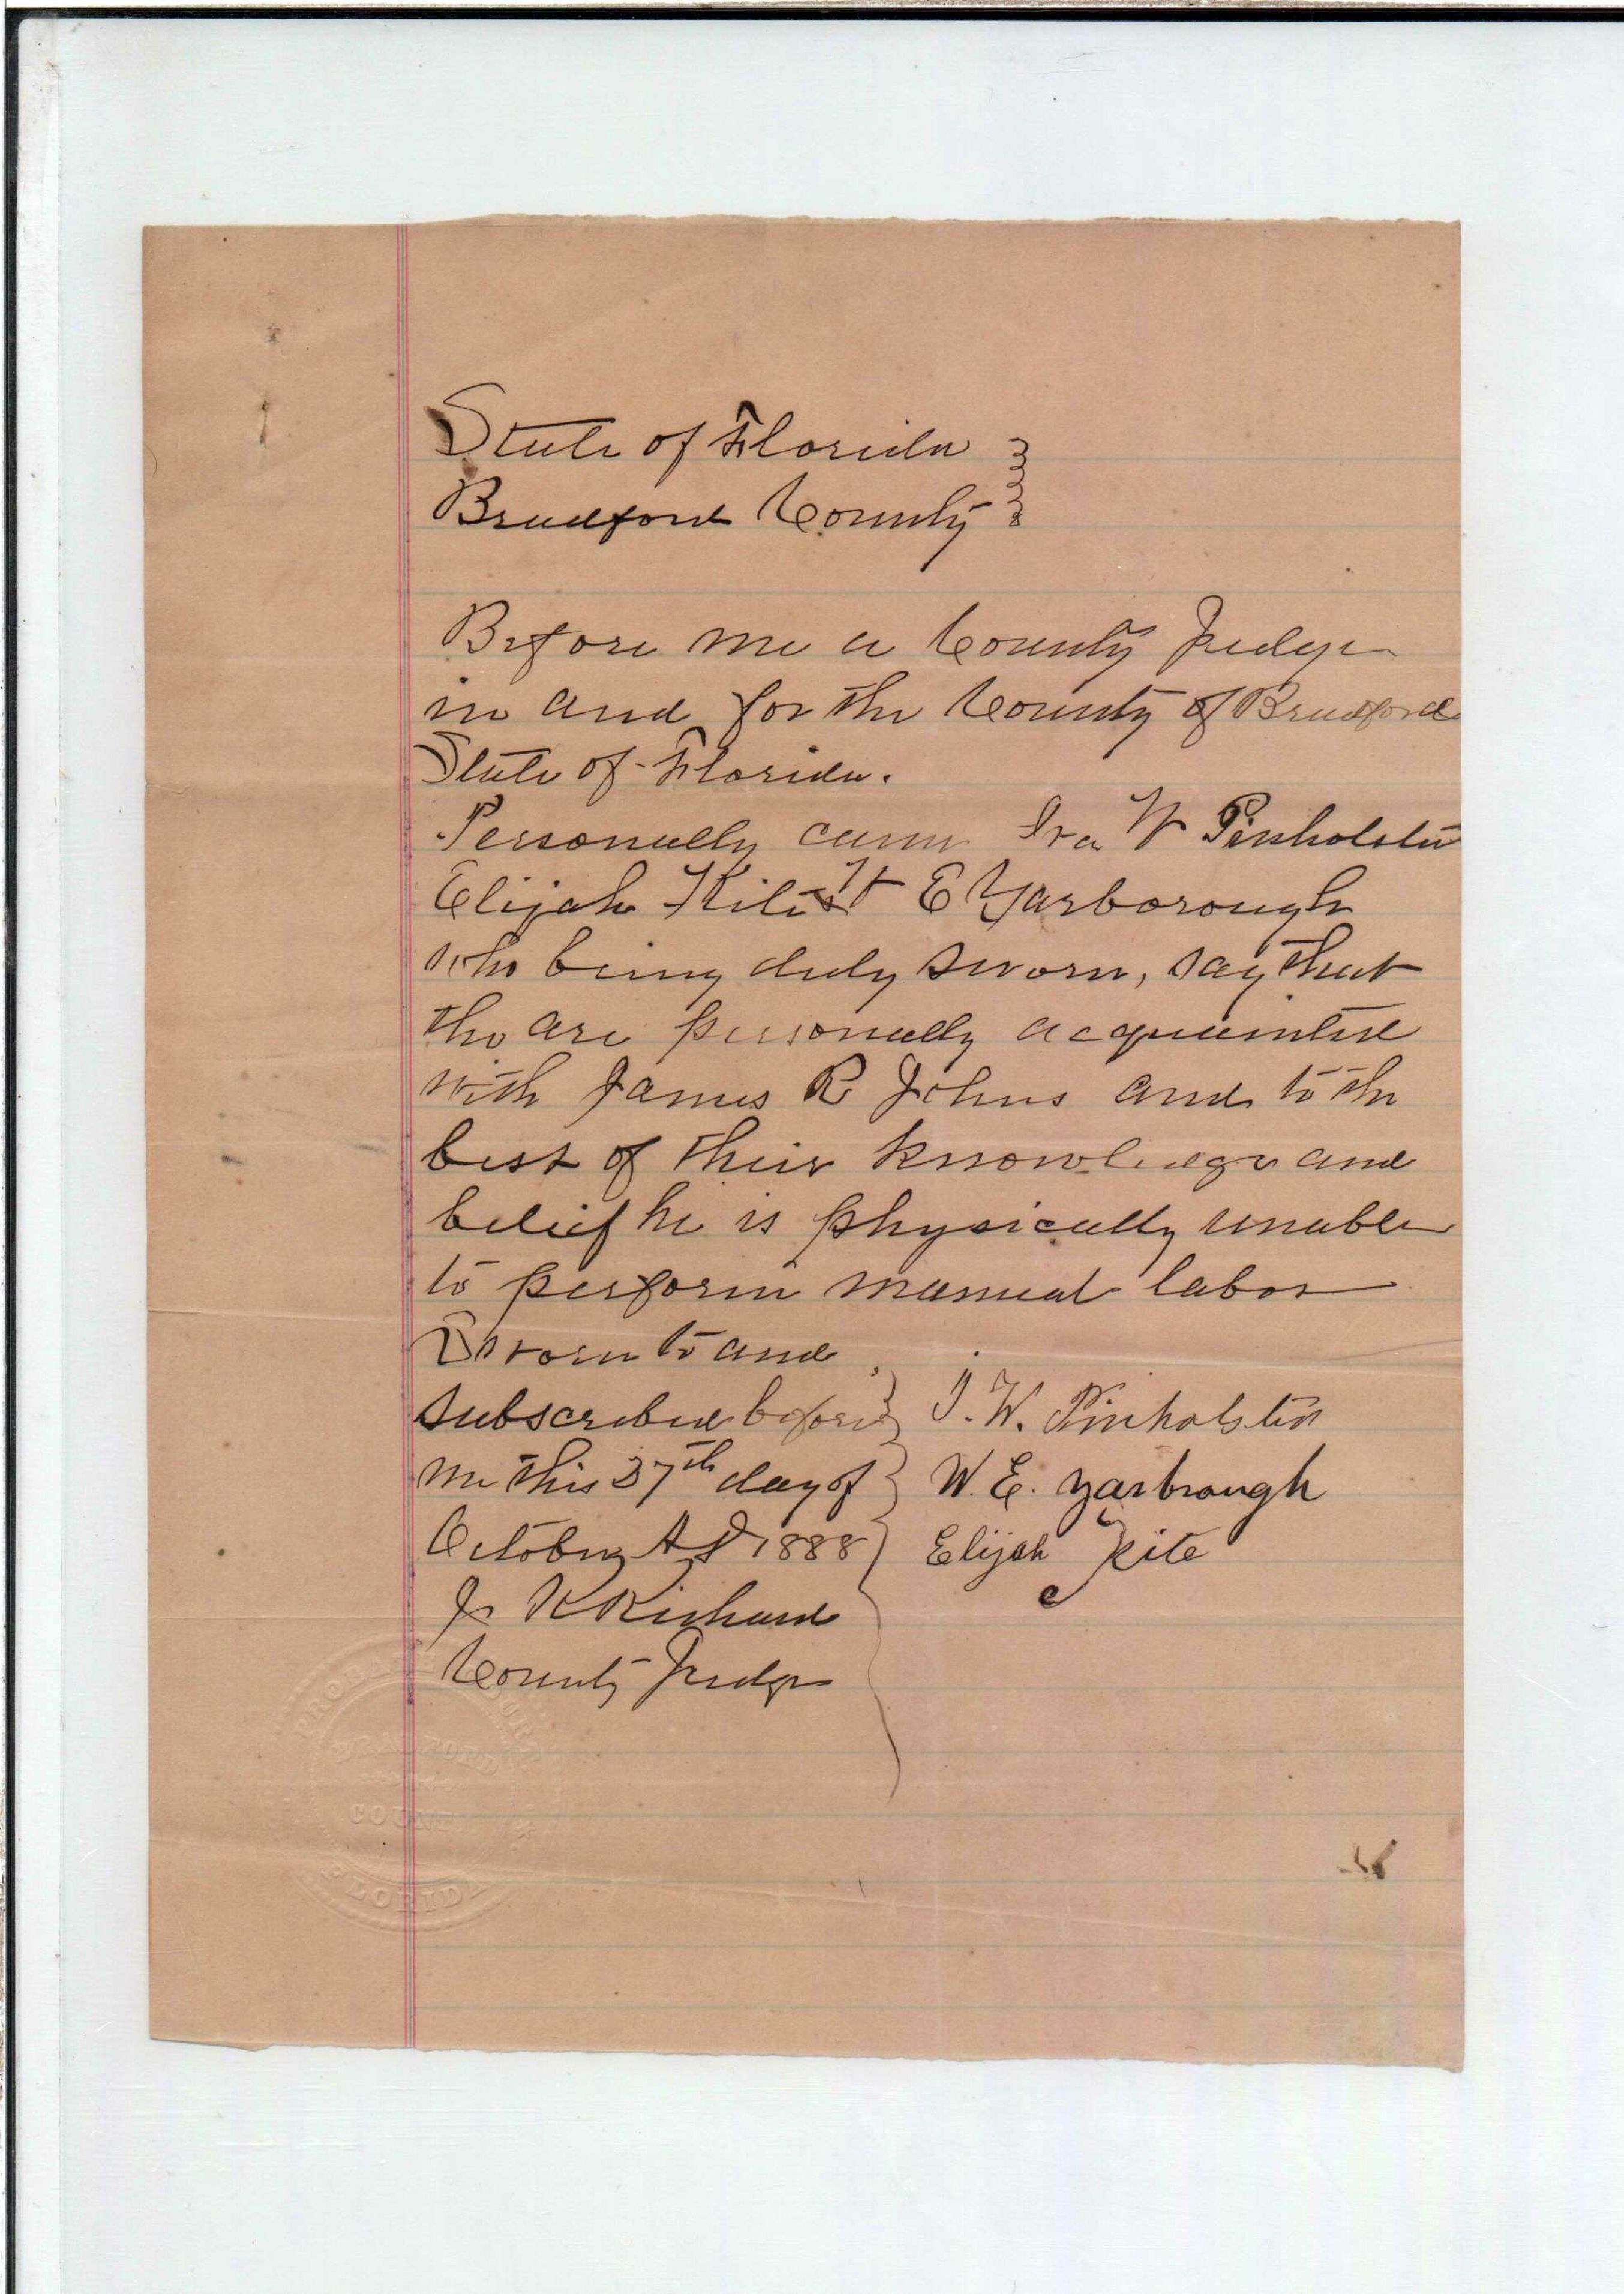 State of Florida
Bradford County
Before me a County Judge
in and for the County of Bradford
State of Florida.
Personally came Ira W Pinholster
Elijah Kite W E Yarborough
who being duly sworn, say that
the are personally acquainted
with James R Johns and to the
best of their knowledge and
belief he is physically unable
to perform manual labor
Sworn to and
subscribed before
me this 27th day of
October AD 1888
J. R Richard
County Judge
I. W. Pinholster
W. E. Yarbrough
Elijah Kite
PROBATE COURT
BRADFORD
COUNTY
FLORIDA